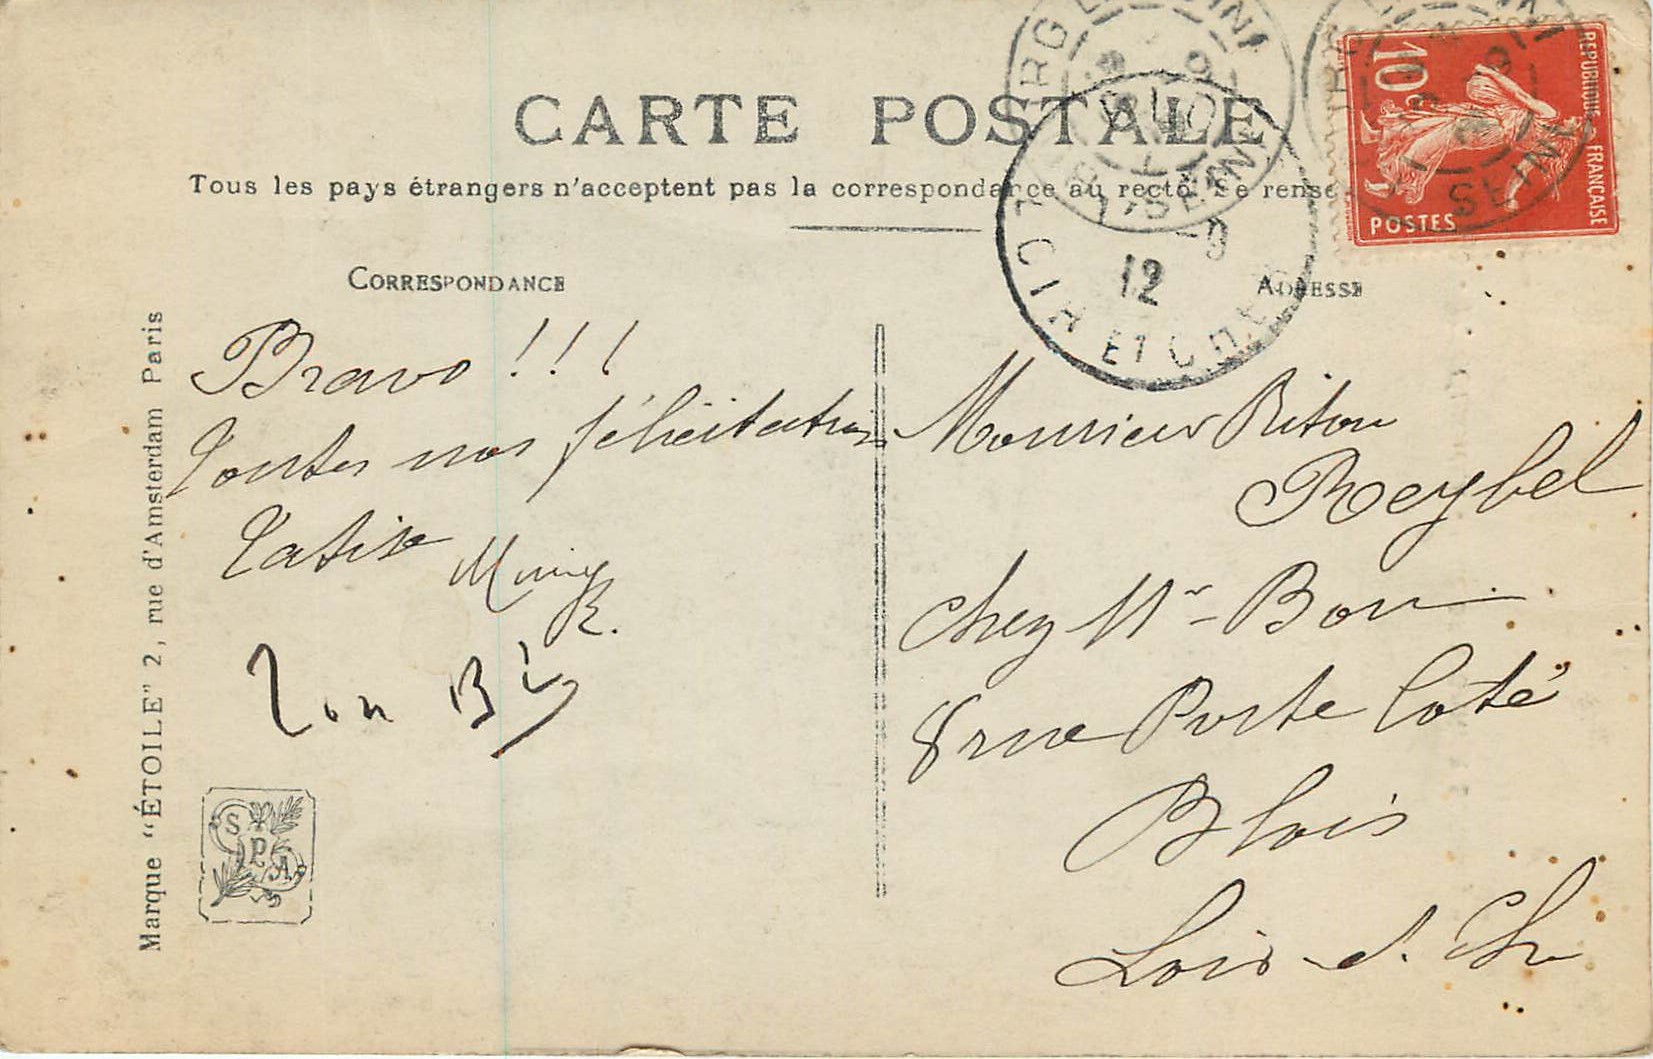 CARTE POSTALE
Tous les pays étrangers n'acceptent pas la correspondance au recto. Se rense
CORRESPONDANCE
ADRESSE
Marque "ÉTOILE" 2, rue d'Amsterdam Paris
Bravo !!!
Toutes nos félicitations
Ton
SPA
Monsieur Riton
Reybel
chez Mr Bon
8 rue Porte Coté
Blois
Loir-et-Ch
10c
REPUBLIQUE FRANÇAISE
POSTES
SEINE
SEINE
12
LOIR ET CHER